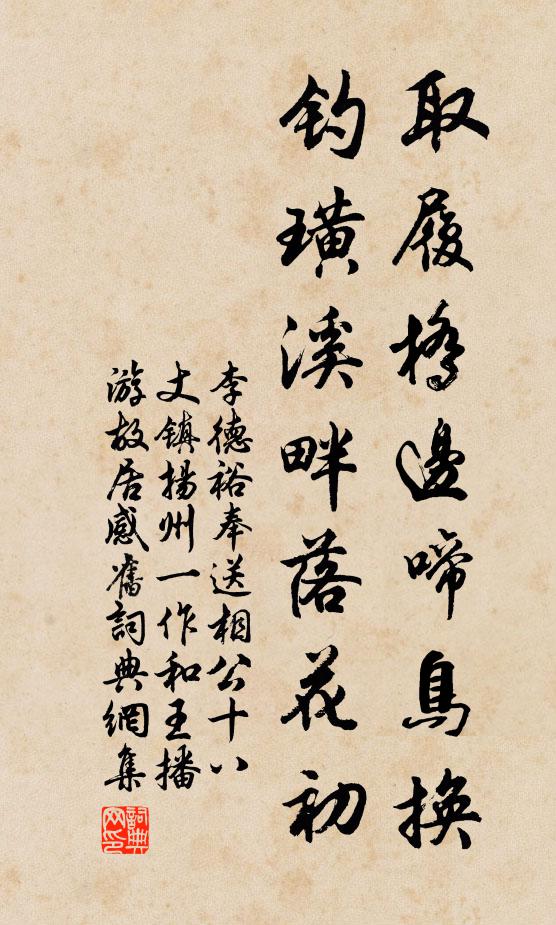 取履橋邊啼鳥換
釣璜溪畔落花初
李德裕奉送相公十八
丈鎮揚州一作和王播
游故居感舊詞典網集
詞典网印